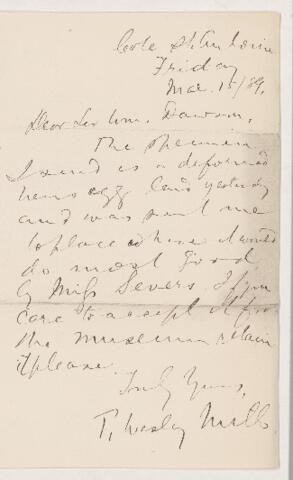 Cote St Antoine
Friday
Mar. 15/89.
Dear Sir Wm. Dawson,
The specimen
I send is a deformed
hens egg laid yesterday
and was sent me
to place where it would
do most good
by Miss Severs. If you
care to accept it for
the museum retain
it please.
Truly Yours,
T. Wesley Mills.